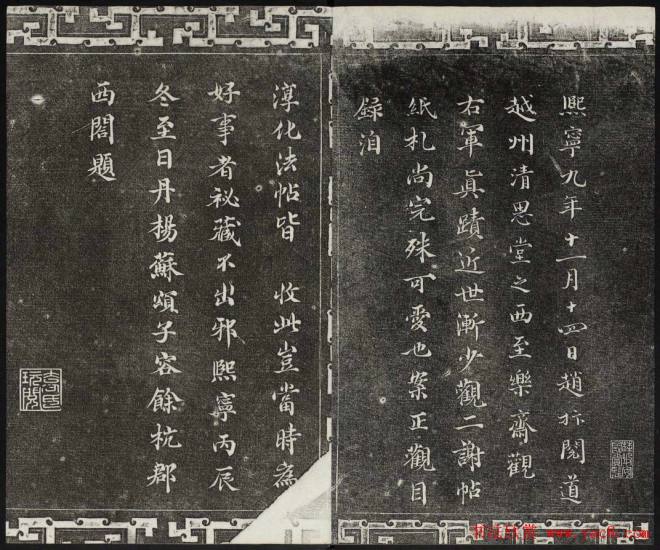 熙寧九年十一月十四日趙抃閱道
越州清思堂之西至樂齋觀
右軍眞蹟近世漸少觀二謝帖
紙札尚完殊可愛也案正觀目
録洎
淳化法帖皆 收此豈當時為
好事者祕藏不出邪熙寧丙辰
冬至日丹楊蘇頌子容餘杭郡
西閣題